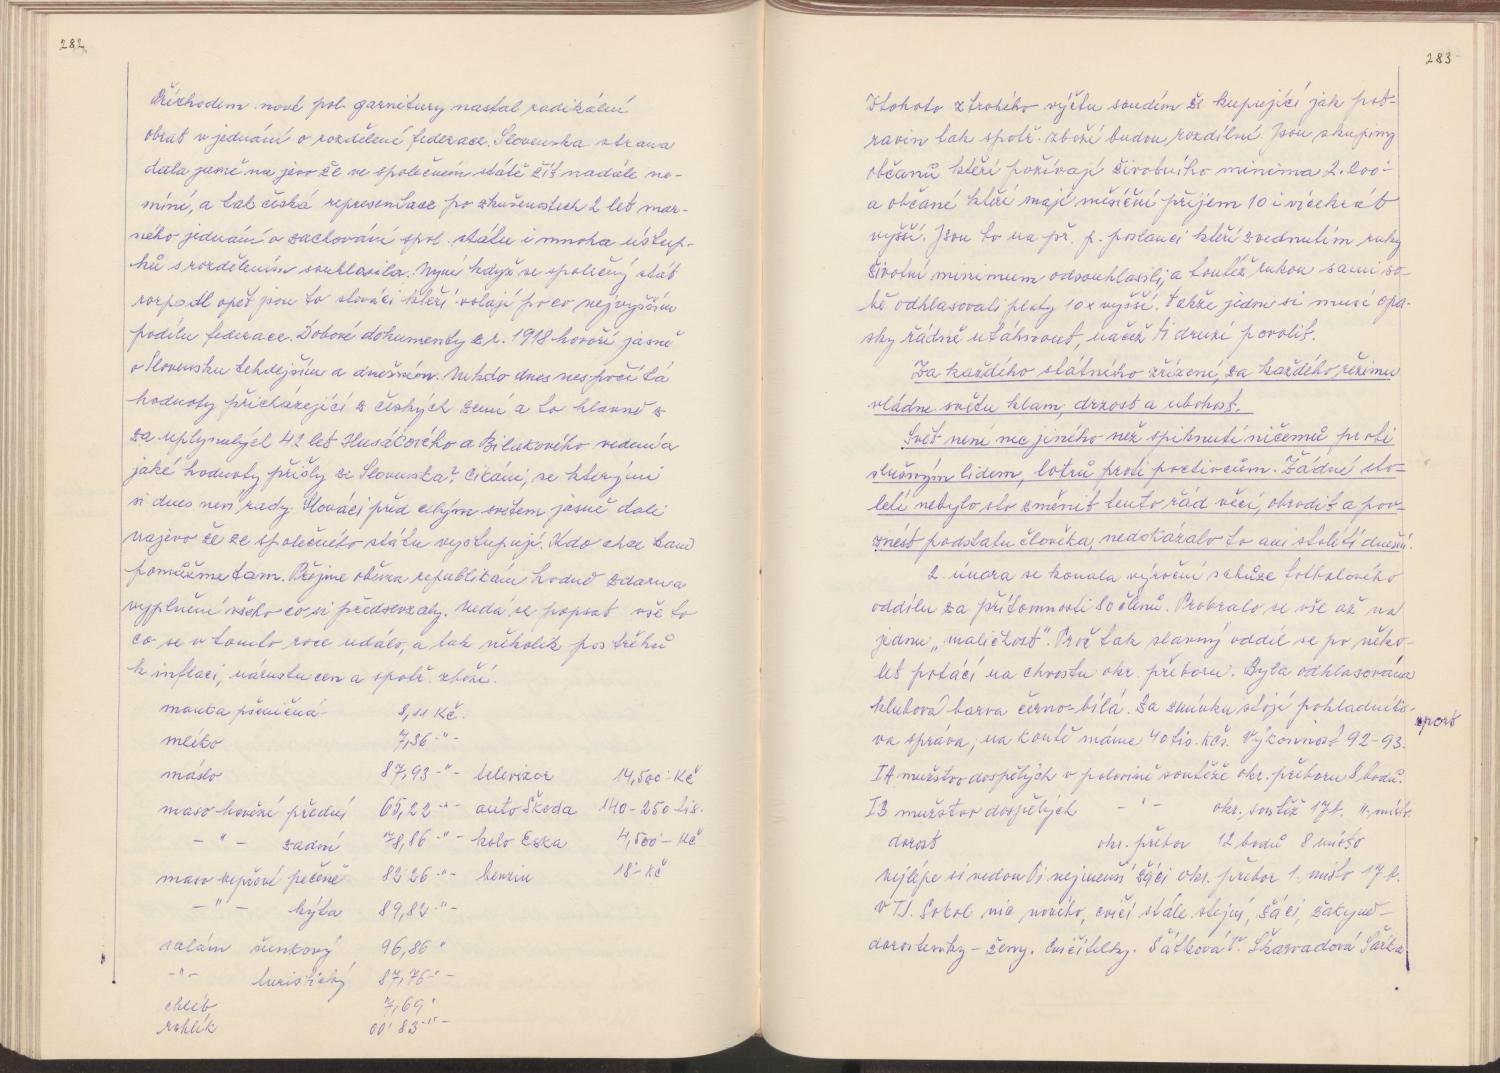 282
Příchodem nové pol. garnitury nastal radikální
obrat v jednání o rozdělení federace. Slovenska strana
dala jasně na jevo že ve společném státě žít nadále ne-
míní, a tak česká representace po zkušenostech 2 let mar-
ného jednání o zachování spol. státu i mnoha ústup-
ků s rozdělením souhlasila. Nyní když se společný stát
rozpadl opět jsou to slováci kteří volají po co nejvyšším
podílu federace. Dobové dokumenty z r. 1918 hovoří jasně
o Slovensku tehdejším a dnešním. Nikdo dnes nespočítá
hodnoty přicházející z českých zemí a to hlavně z
za uplynulých 42 let Husákového a Bilakového vedení a
jaké hodnoty přišly ze Slovenska? Cikáni, se kterými
si dnes není rady. Slováci před celým světem jasně dali
najevo že ze společného státu vystupují. Kdo chce kam
pomůžme tam. Přejme oběma republikám hodně zdaru a
vyplnění všeho co si předsevzaly. Nedá se popsat vše to
co se v tomto roce událo, a tak několik postřehů
k inflaci, nárustu cen a spotř. zboží.
mouka pšeničná 8,11 Kč.
mléko 7,36 -"-
máslo 87,93 -"- televizor 14,500.- Kč
maso hovězí přední 65,22 -"- auto Škoda 140-250 tis.
-"- zadní 78,86 -"- kolo Eska 4,500- Kč
maso vepřové pečeně 82,26 -"- benzin 18.- Kč
-"- kýta 89,82 -"-
salám šunkový 96,86 "
-"- turistický 87,76 -
chléb 7,69'
rohlík 00'83 -"-
283
Z tohoto strohého výčtu soudím že kupující jak pot-
ravin tak spotř. zboží budou rozdílní. Jsou skupiny
občanů kteří požívají životního minima 2.200.-
a občané kteří mají měsíční příjem 10 i vícekrát
vyšší. Jsou to na př. p. poslanci kteří zvednutím ruky
životní minimum odsouhlasili, a toutéž rukou sami so-
bě odhlasovali platy 10x vyšší. Takže jedni si musí opa-
sky řádně utáhnout, načež ti druzí povolit.
Za každého státního zřízení, za každého režimu
vládne světu klam, drzost a ubohost.
Svět není nic jiného než spiknutí ničemů proti
slušným lidem, lotrů proti poctivcům. Žádné sto-
letí nebylo sto změnit tento řád věcí, obrodit a pov-
znést podstatu člověka, nedokázalo to ani století dnešní.
2. února se konala výroční schůze fotbalového
oddílu za přítomnosti 80 členů. Probralo se vše až na
jednu „maličkost". Proč tak slavný oddíl se po něko-
let potácí na chvostu okr. přeboru. Byla odhlasována
klubová barva černo-bílá. Za zmínku stojí pokladního-
va správa, na kontě máme 40 tis. Kčs. Výkonnost 92-93.
sport
IA mužstvo dospělých v polovině soutěže okr. přeboru 8 bodů.
IB mužstvo dospělých -"- okr. soutěž 17 b. 11. místo
dorost okr. přebor 12 bodů 8 místo
Nejlépe si vedou ti nejmenší žáci okr. přebor 1. místo 17 b.
V TJ. Sokol nic nového, cvičí stále stejní, žáci, žákyně-
dorostenky - ženy. Cvičitelky. Šátková V. Škarvadová Šárka